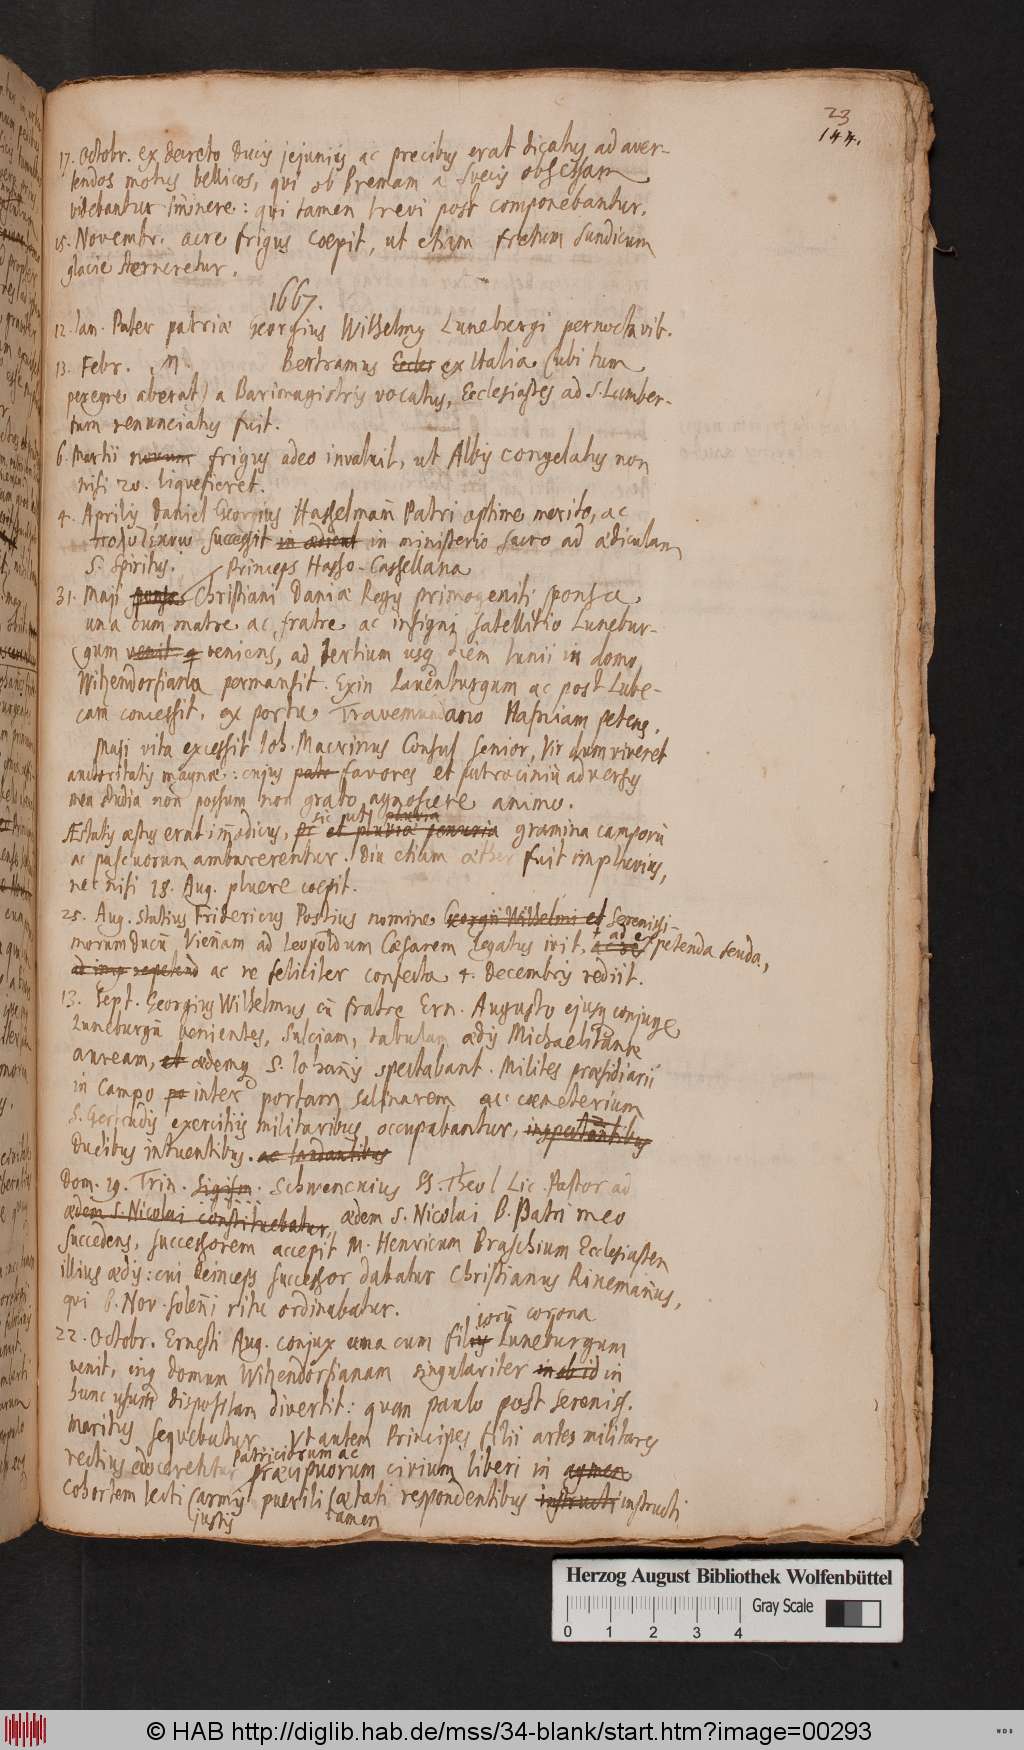 23
144.
17. Octobr. ex decreto Ducis jejunijs ac precibus erat dicatus ad aver-
tendos motus bellicos, qui ob Bremam a Svecis obsessam
videbantur iminere: qui tamen brevi post componebantur.
15. Novembr. acre frigus coepit, ut etiam fretum Sundicum
glacie sterneretur.
1667.
12. Jan. Pater patriæ Georgius Wilhelmus Luneburgi pernoctavit.
13. Febr. M. Bertramus Eccles ex Italia (ubi tum
peregre aberat) a Barimagistris vocatus, Ecclesiastes ad S. Lamber-
tum renunciatus fuit.
6. Martii novum frigus adeo invaluit, ut Albis congelatus non
nisi 20. liquefieret.
4. Aprilis Daniel Georgius Hasselman Patri optime merito, ac
successit in ædicul in ministerio sacro ad ædiculam
S. Spiritus. Princeps Hasso-Cassellana
31. Maji sponsa Christiani Daniæ Regis primogeniti sponsa
una cum matre ac fratre ac insigni satellitio Lunebur-
gum venit q veniens, ad tertium usq diem Iunii in domo
Witzendorfiana permansit. Exin Lauenburgum ac post Lube-
cam concessit, ex portu Travemundano Hafniam petens.
Maji vita excessit Ioh. Macrinus Consul senior, Vir dum viveret
auctoritatis magnæ: cujus patr favores et patrociniu adversus
mea studia non possum non grato agnoscere animo.
sic uti pluvia
Æstatis æstus erat imodicus, et pluviæ penuria gramina camporu
ac pascuorum amburerentur. Diu etiam æther fuit impluvius,
nec nisi 18. Aug. pluere coepit.
25. Aug. Statius Fridericus Postius nomine Georgii Wilhelmi et Serenissi-
morum Ducu Vienam ad Leopoldum Cæsarem legatus ivit, ad petenda feuda,
ac re feliciter confecta 4. Decembris rediit.
13. Sept. Georgius Wilhelmus cu fratre Ern. Augusto ejusq conjuge
Luneburgu venientes, Sulciam, tabulam ædis Michaelitanæ
auream, et ædemq S. Iohanis spectabant. Milites præsidiarii
in campo inter portam salinarem ac coemeterium
S. Gertrudis exercitiis militaribus occupabantur, inspectantibus
Ducibus intuentibus. ac laudantibus
Dom. 19. Trin. Sigism. Schwenckius SS. Theol. Lic. Pastor ad
ædem S. Nicolai constituebatur, ædem S. Nicolai B. Patri meo
succedens, successorem accepit M. Henricum Braschium Ecclesiasten
illius ædis: cui deinceps successor dabatur Christianus Rinemanus,
qui 8. Nov. soleni ritu ordinabatur.
ioru corona
22. Octobr. Ernesti Aug. conjux una cum filiis Luneburgum
venit, inq domum Witzendorfianam singulariter in ob id in
hunc usum dispositam divertit: quam paulo post Sereniss.
maritus sequebatur. Vt autem Principes filii artes militares
patriciorum ac
rectius edocerentur, præcipuorum civium liberi in agmen
cohortem lecti (armis puerili (ætati respondentibus instructi instructi
justis tamen
Herzog August Bibliothek Wolfenbüttel
Gray Scale
0 1 2 3 4
© HAB http://diglib.hab.de/mss/34-blank/start.htm?image=00293
WDB